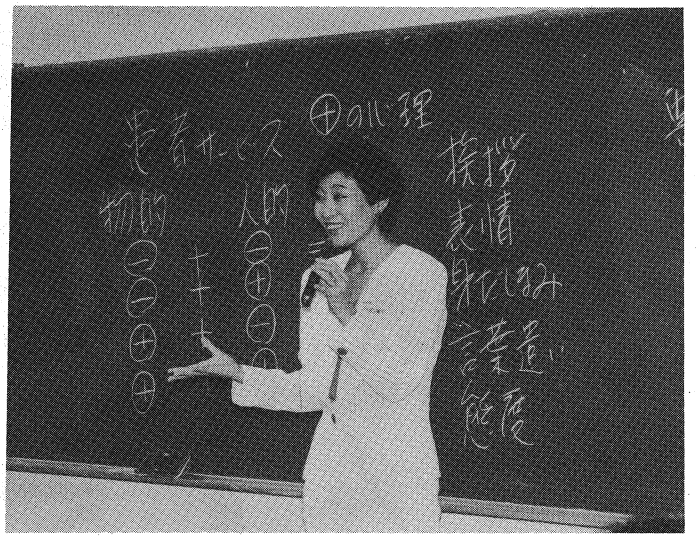 患者サービス
⊕の心理
物的 人的
⊖ + ⊖
⊖ + ⊕
⊕ + ⊖
⊕
挨拶
表情
身だしなみ
言葉遣い
態度